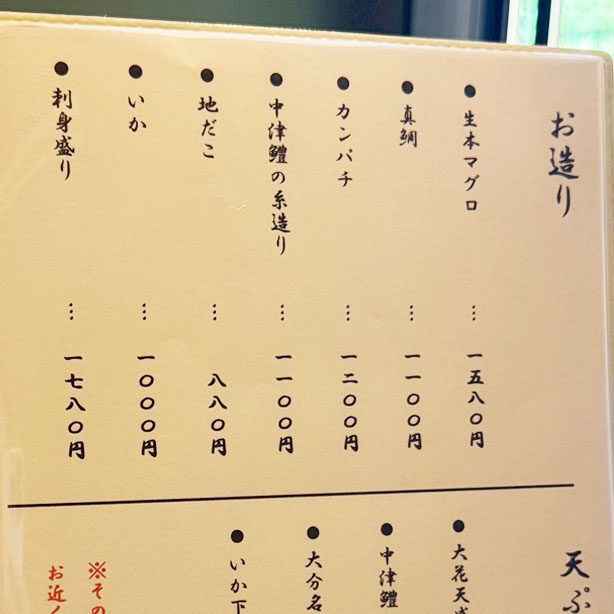 お造り
●生本マグロ … 一五八〇円
●真鯛 … 一一〇〇円
●カンパチ … 一二〇〇円
●中津鱧の糸造り … 一一〇〇円
●地だこ … 八八〇円
●いか … 一〇〇〇円
●刺身盛り … 一七八〇円
天ぷ
●大花天
●中津鱧
●大分名
●いか下
※その
お近く